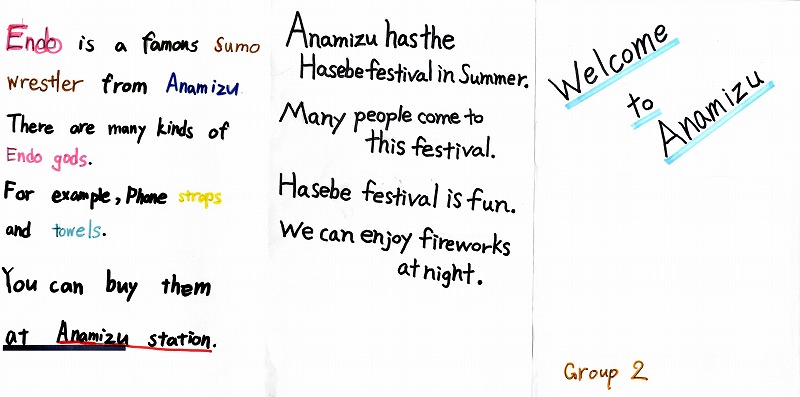 Endo is a famous sumo
wrestler from Anamizu
There are many kinds of
Endo gods.
For example, Phone straps
and towels.
You can buy them
at Anamizu station.
Anamizu has the
Hasebe festival in Summer.
Many people come to
this festival.
Hasebe festival is fun.
We can enjoy fireworks
at night.
Welcome
to
Anamizu
Group 2